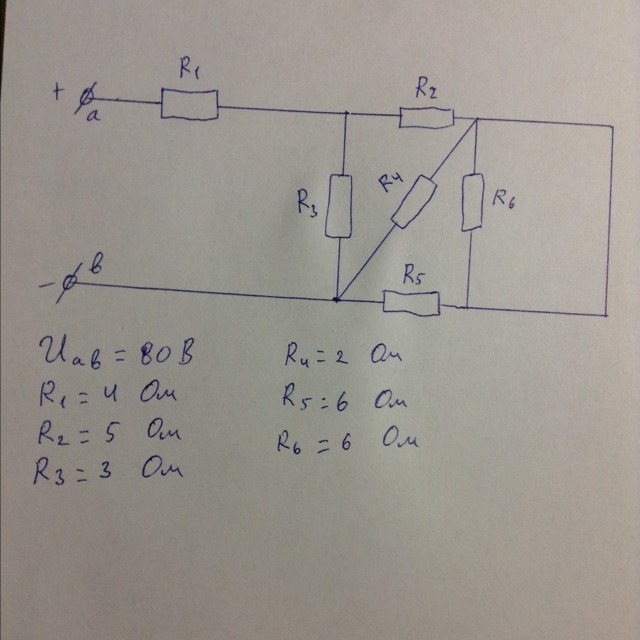 R₁
R₂
+
a
R₃
R₄
R₆
b
R₅
−
Uab = 80 В
R₁ = 4 Ом
R₂ = 5 Ом
R₃ = 3 Ом
R₄ = 2 Ом
R₅ = 6 Ом
R₆ = 6 Ом